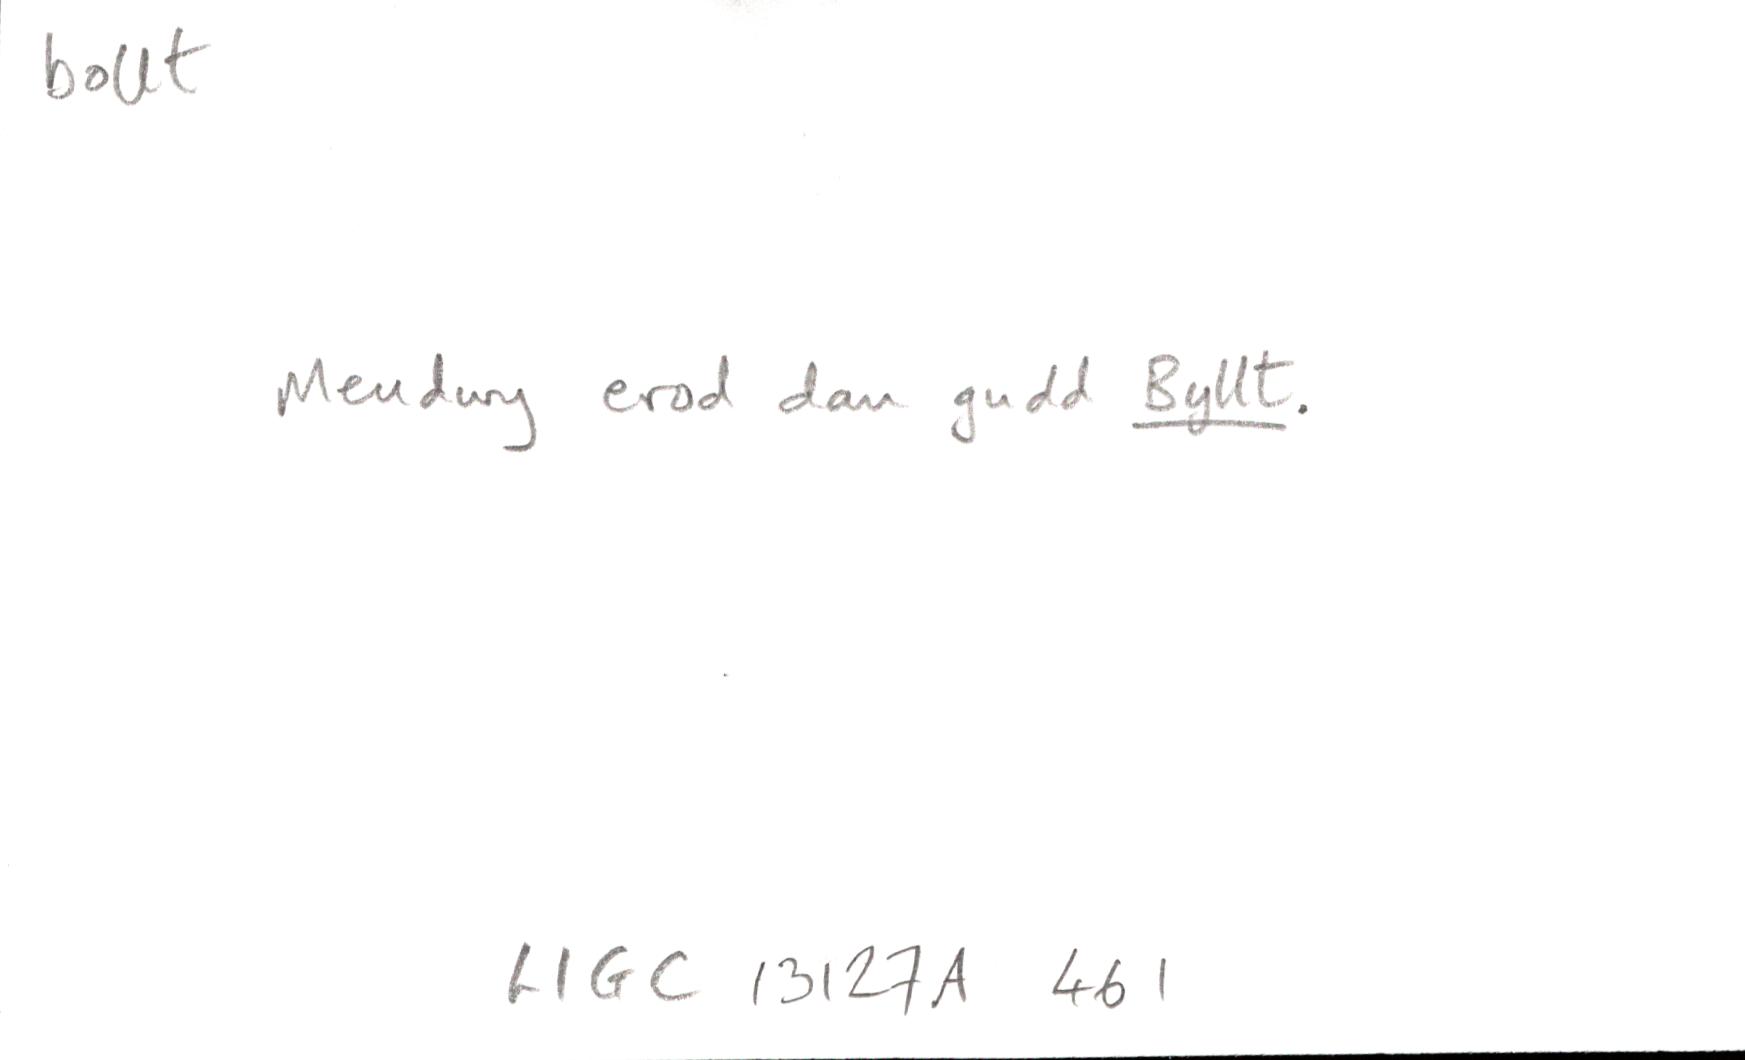 bollt
Mendwy erod dan gudd Byllt.
LlGC 13127A 461